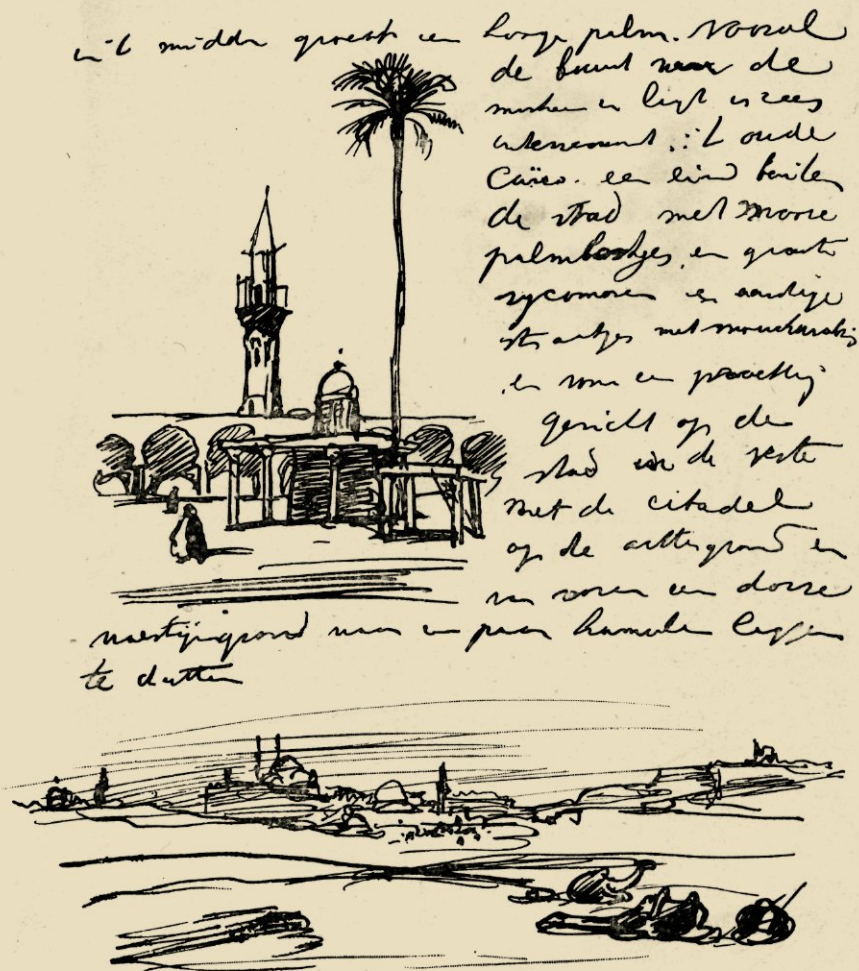 in 't midden groeit een hooge palm. Vooral
de buurt waar de
moskee in ligt is zeer
interessant; 't oude
Caïro. een eind buiten
de stad met mooie
palmboschjes, en groote
sycomoren en aardige
straatjes met moucharabis
en een prachtig
gezicht op de
stad in de verte
met de citadel
op de achtergrond en
van voren een dorre
woestijngrond waar een paar kameelen liggen
te dutten